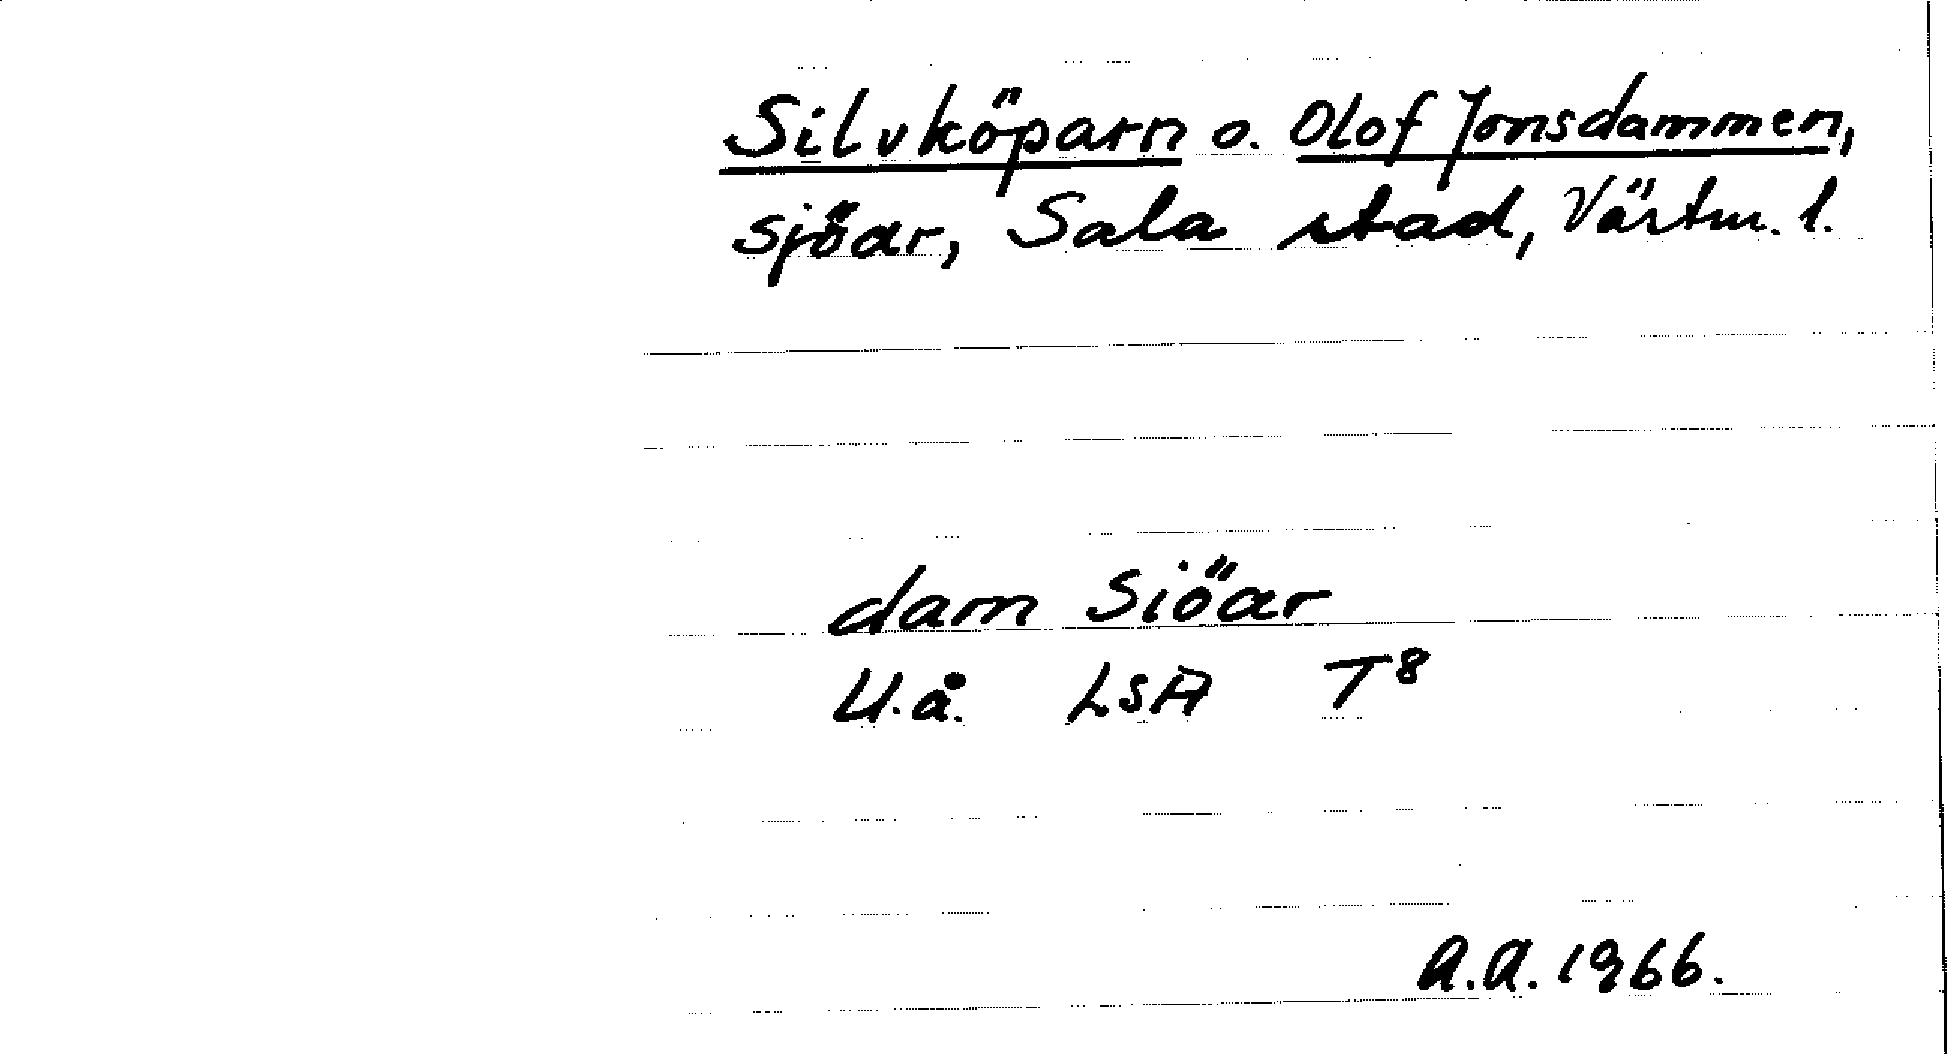 Silvköparn o. Olof Jonsdammen,
sjöar, Sala stad, Västm. l.
dam Siöar
U.å. LSA T8
A.A. 1966.